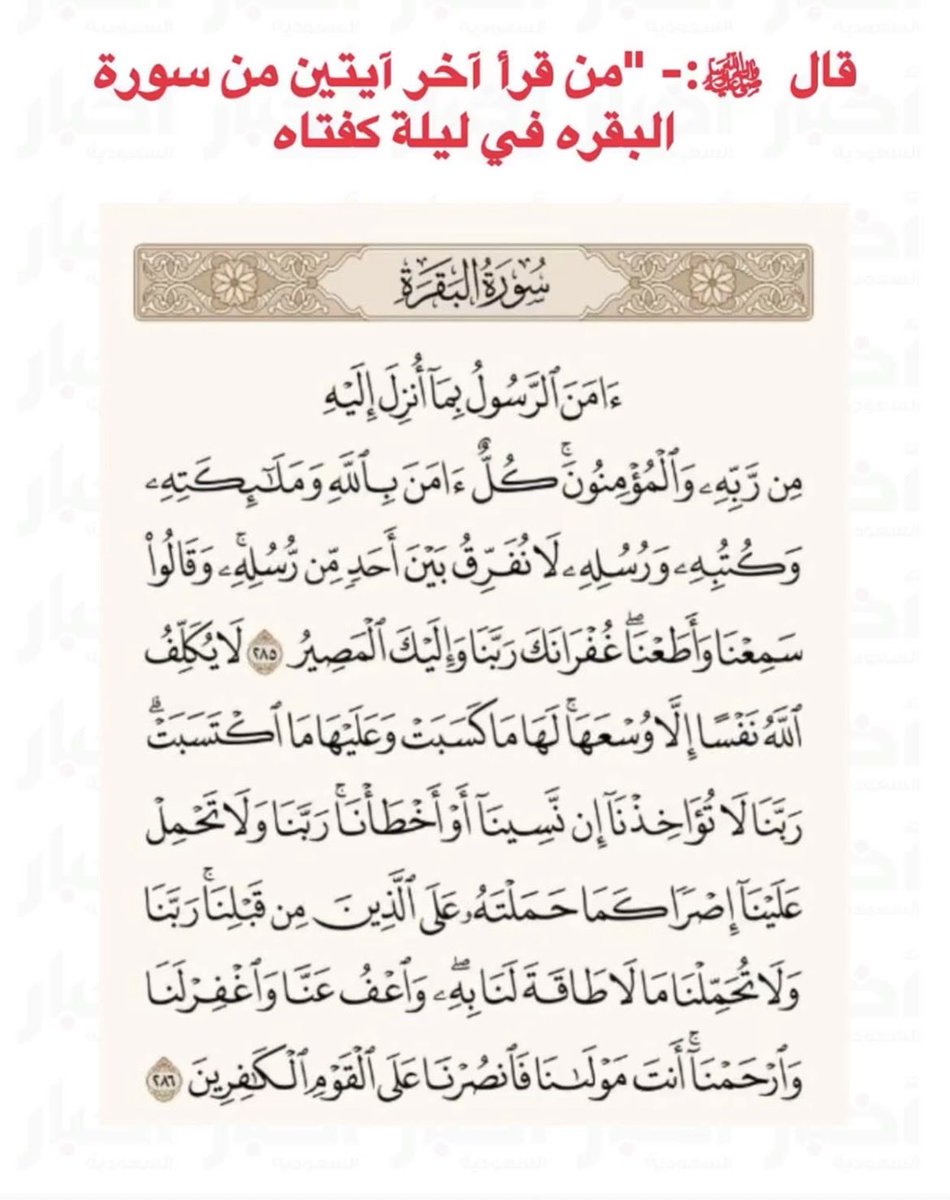 قال ﷺ:- "من قرأ آخر آيتين من سورة
البقره في ليلة كفتاه
سُورَةُ البَقَرَةِ
ءَامَنَ ٱلرَّسُولُ بِمَآ أُنزِلَ إِلَيْهِ
مِن رَّبِّهِۦ وَٱلْمُؤْمِنُونَۚ كُلٌّ ءَامَنَ بِٱللَّهِ وَمَلَـٰٓئِكَتِهِۦ
وَكُتُبِهِۦ وَرُسُلِهِۦ لَا نُفَرِّقُ بَيْنَ أَحَدٍ مِّن رُّسُلِهِۦۚ وَقَالُوا۟
سَمِعْنَا وَأَطَعْنَاۖ غُفْرَانَكَ رَبَّنَا وَإِلَيْكَ ٱلْمَصِيرُ ٢٨٥ لَا يُكَلِّفُ
ٱللَّهُ نَفْسًا إِلَّا وُسْعَهَاۚ لَهَا مَا كَسَبَتْ وَعَلَيْهَا مَا ٱكْتَسَبَتْۗ
رَبَّنَا لَا تُؤَاخِذْنَآ إِن نَّسِينَآ أَوْ أَخْطَأْنَاۚ رَبَّنَا وَلَا تَحْمِلْ
عَلَيْنَآ إِصْرًا كَمَا حَمَلْتَهُۥ عَلَى ٱلَّذِينَ مِن قَبْلِنَاۚ رَبَّنَا
وَلَا تُحَمِّلْنَا مَا لَا طَاقَةَ لَنَا بِهِۦۖ وَٱعْفُ عَنَّا وَٱغْفِرْ لَنَا
وَٱرْحَمْنَآۚ أَنتَ مَوْلَىٰنَا فَٱنصُرْنَا عَلَى ٱلْقَوْمِ ٱلْكَـٰفِرِينَ ٢٨٦